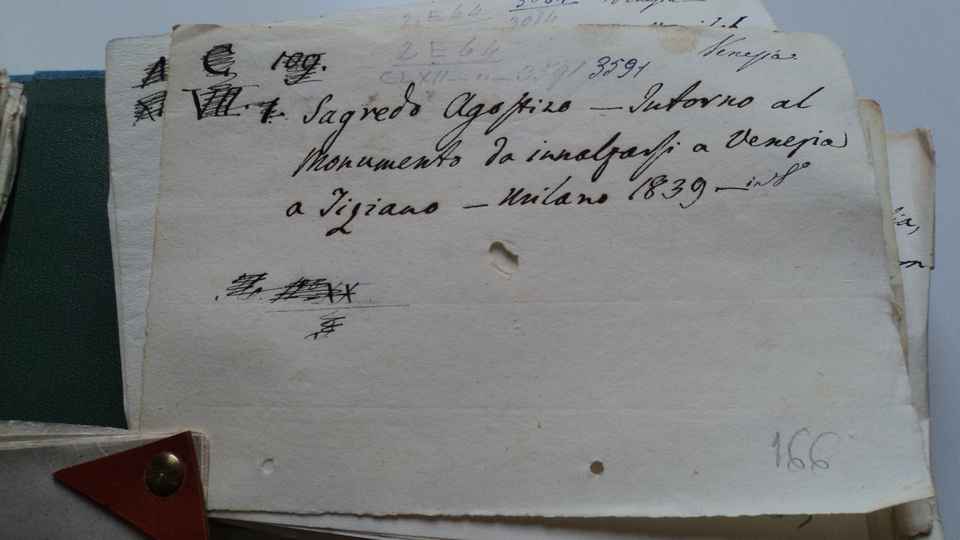 3084
2 E 44
3084
2 E 44
C 109.
CLXII 3591 3591 Venezia
VIII. 7. Sagredo Agostino — Intorno al
Monumento da innalzarsi a Venezia
a Tiziano — Milano 1839 — in 8º
XX
166